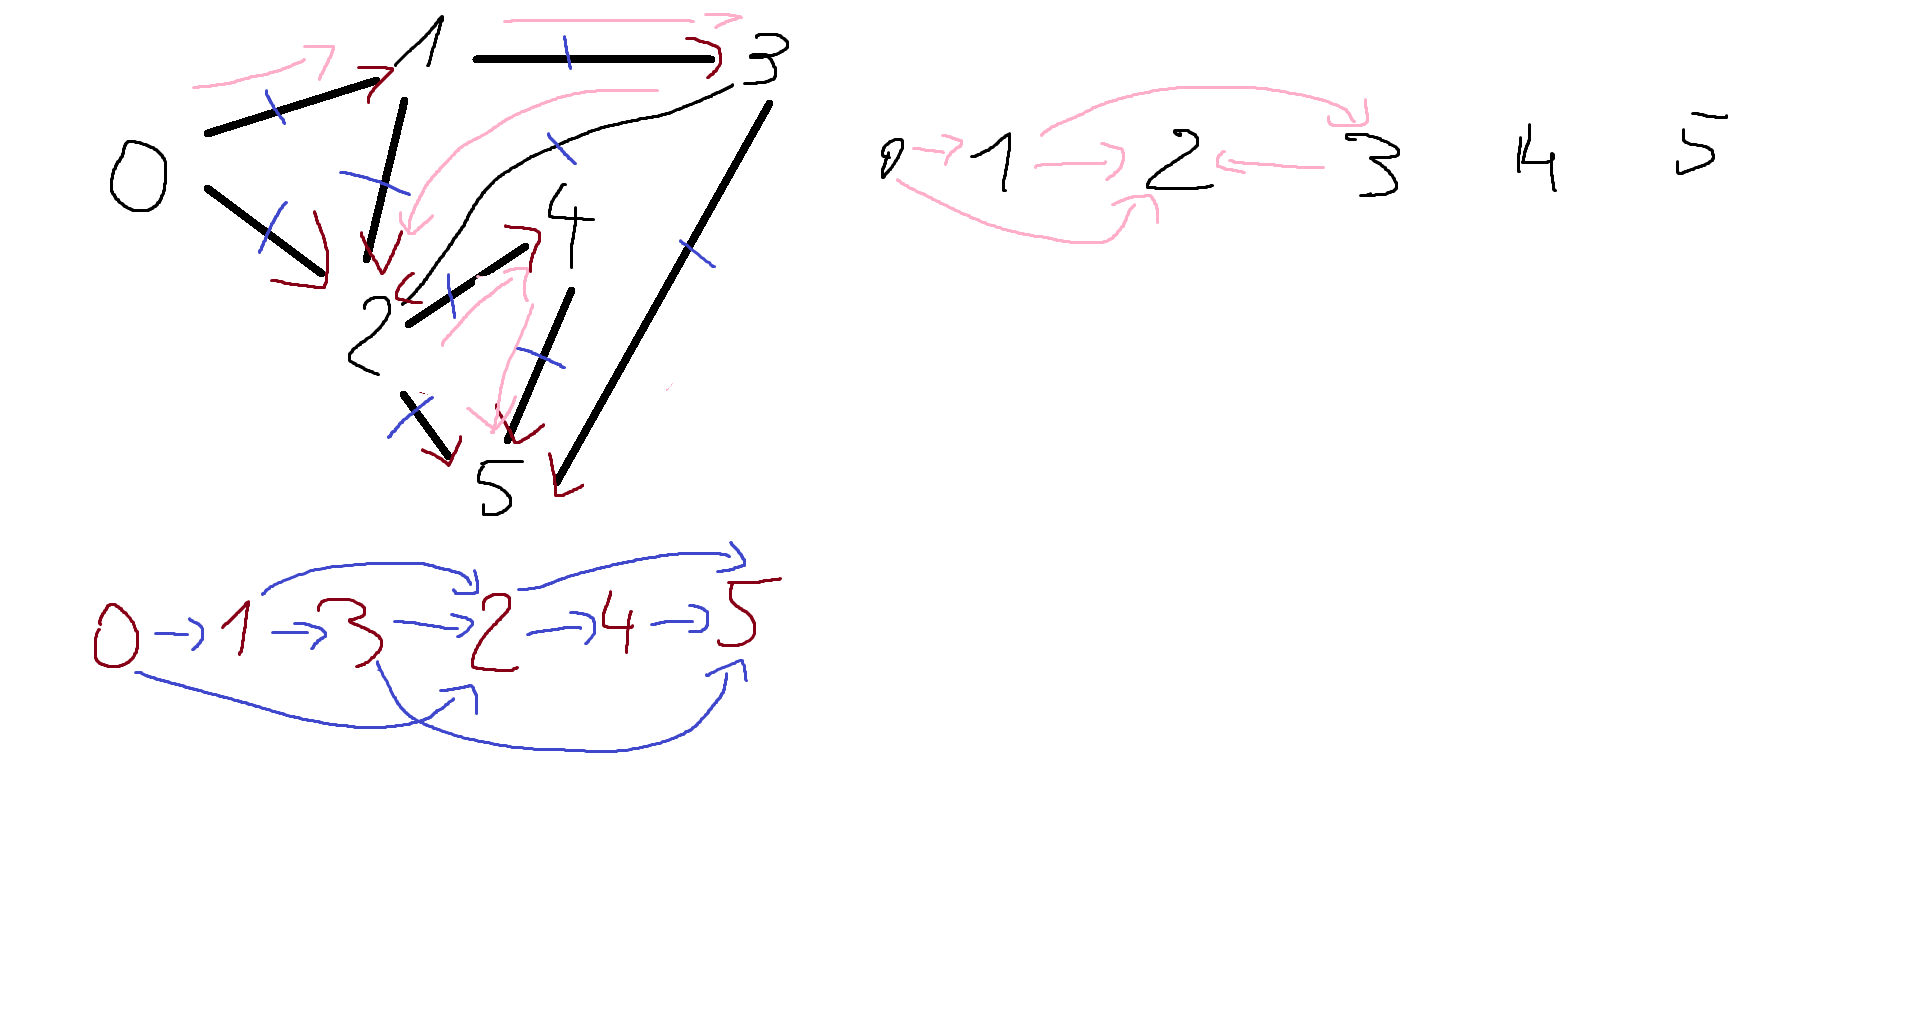 1 3
0
4
2
5
0 1 2 3 4 5
0 1 3 2 4 5